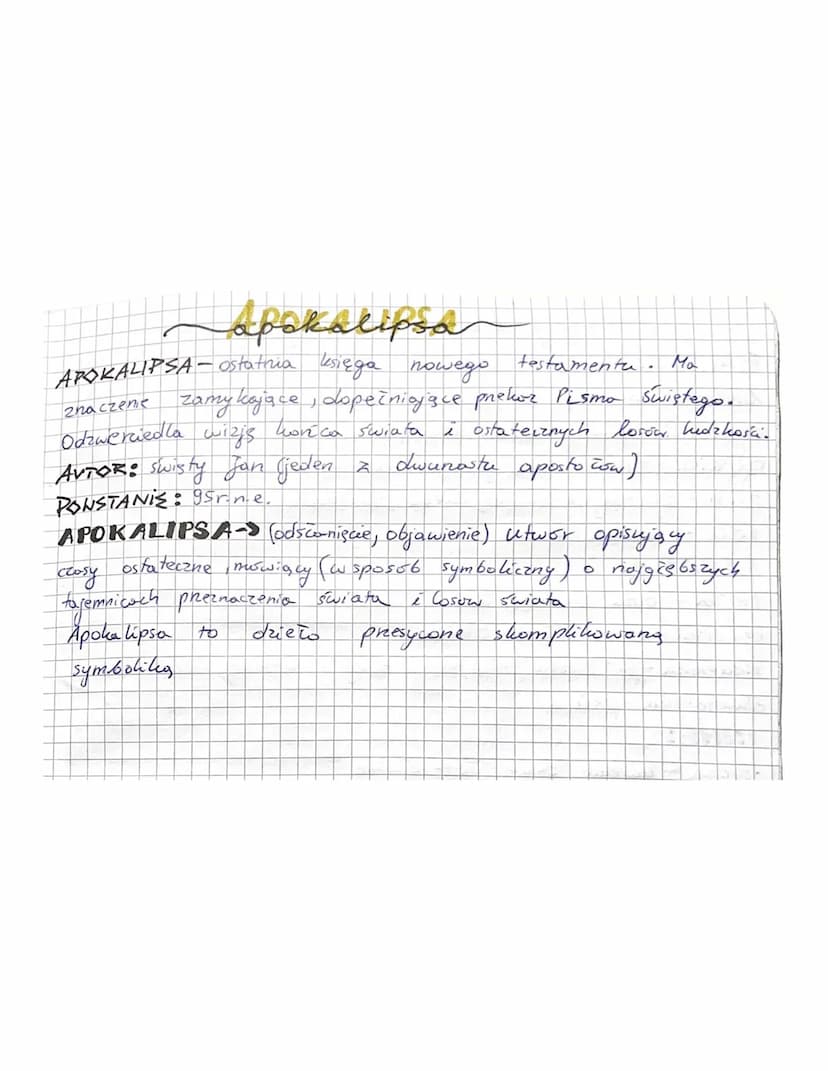 APOKALIPSA
apokalipsa
APOKALIPSA - ostatnia księga nowego testamentu. Ma
znaczenie zamykające, dopełniające przekaz Pisma Świętego.
Odzwierciedla wizję końca świata i ostatecznych losów ludzkości.
AUTOR: święty Jan (jeden z dwunastu apostołów)
POWSTANIE: 95r.n.e.
APOKALIPSA → (odsłonięcie, objawienie) utwór opisujący
czasy ostateczne, mówiący (w sposób symboliczny) o najgłębszych
tajemnicach przeznaczenia świata i losów świata
Apokalipsa to dzieło przesycone skomplikowaną
symboliką